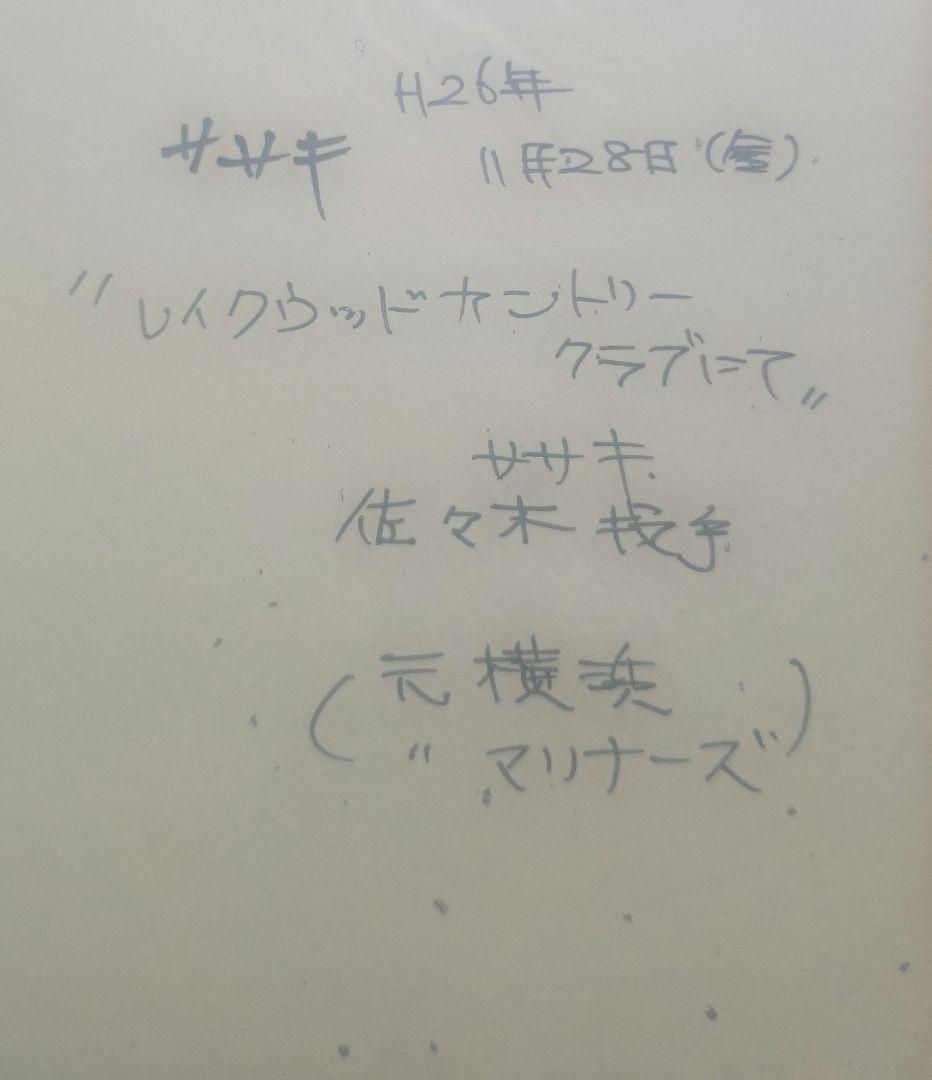 H26年
ササキ 11月28日(金)
"レイクウッドカントリー
クラブにて"
ササキ
佐々木投手
(元横浜
〃マリナーズ)